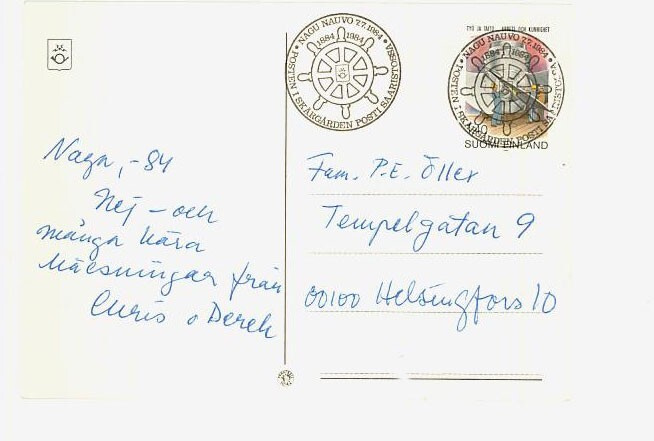 NAGU NAUVO 7.7.1984
1884 1984
POSTEN I SKÄRGÅRDEN POSTI SAARISTOSSA
TYÖ JA TAITO ARBETE OCH KUNNIGHET
NAGU NAUVO 7.7.1984
1884 1984
POSTEN I SKÄRGÅRDEN POSTI SAARISTOSSA
SUOMI FINLAND
Nagu, -84
Hej - och
många kära
hälsningar från
Chris o Derek
Fam. P.E. Öller
Tempelgatan 9
00100 Helsingfors 10